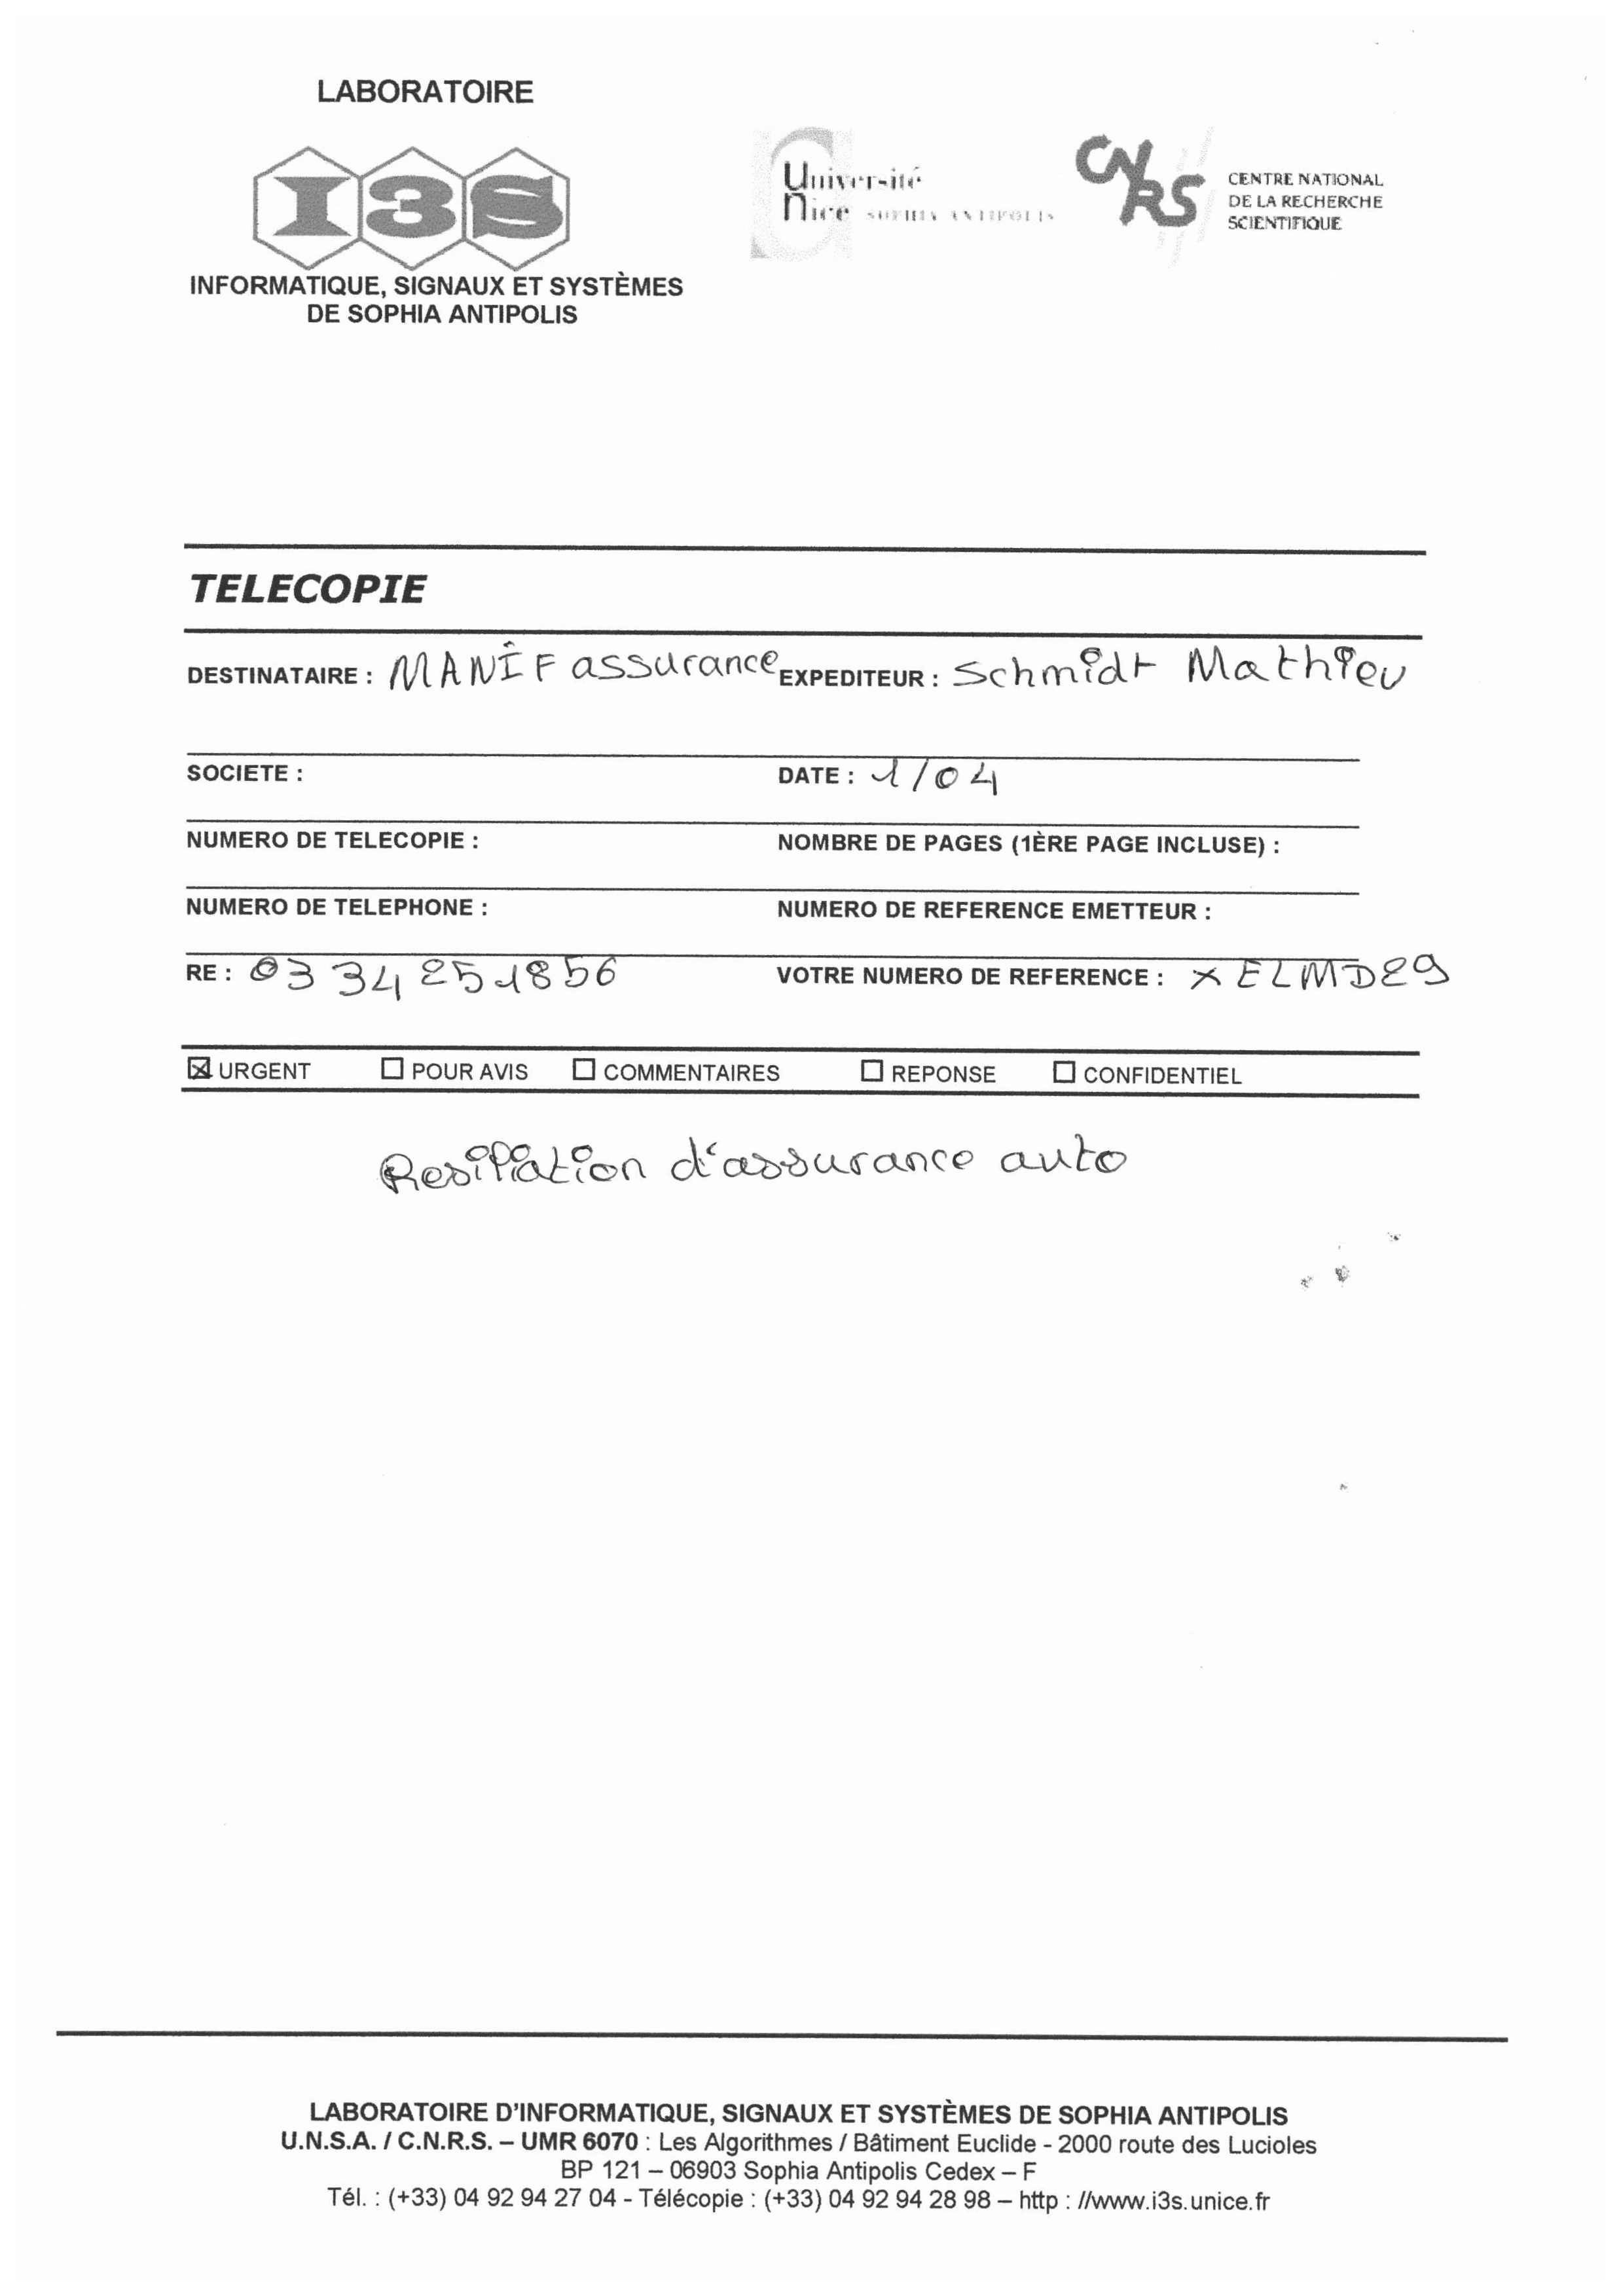 LABORATOIRE
I3S
INFORMATIQUE, SIGNAUX ET SYSTÈMES
DE SOPHIA ANTIPOLIS
Université
Nice SOPHIA ANTIPOLIS
CNRS
CENTRE NATIONAL
DE LA RECHERCHE
SCIENTIFIQUE
TELECOPIE
DESTINATAIRE : MANIF assurance EXPEDITEUR : Schmidt Mathieu
SOCIETE : DATE : 1/04
NUMERO DE TELECOPIE : NOMBRE DE PAGES (1ÈRE PAGE INCLUSE) :
NUMERO DE TELEPHONE : NUMERO DE REFERENCE EMETTEUR :
RE : 03 34 25 18 56 VOTRE NUMERO DE REFERENCE : XELMD29
☒ URGENT ☐ POUR AVIS ☐ COMMENTAIRES ☐ REPONSE ☐ CONFIDENTIEL
Resiliation d'assurance auto
LABORATOIRE D'INFORMATIQUE, SIGNAUX ET SYSTÈMES DE SOPHIA ANTIPOLIS
U.N.S.A. / C.N.R.S. – UMR 6070 : Les Algorithmes / Bâtiment Euclide - 2000 route des Lucioles
BP 121 – 06903 Sophia Antipolis Cedex – F
Tél. : (+33) 04 92 94 27 04 - Télécopie : (+33) 04 92 94 28 98 – http : //www.i3s.unice.fr